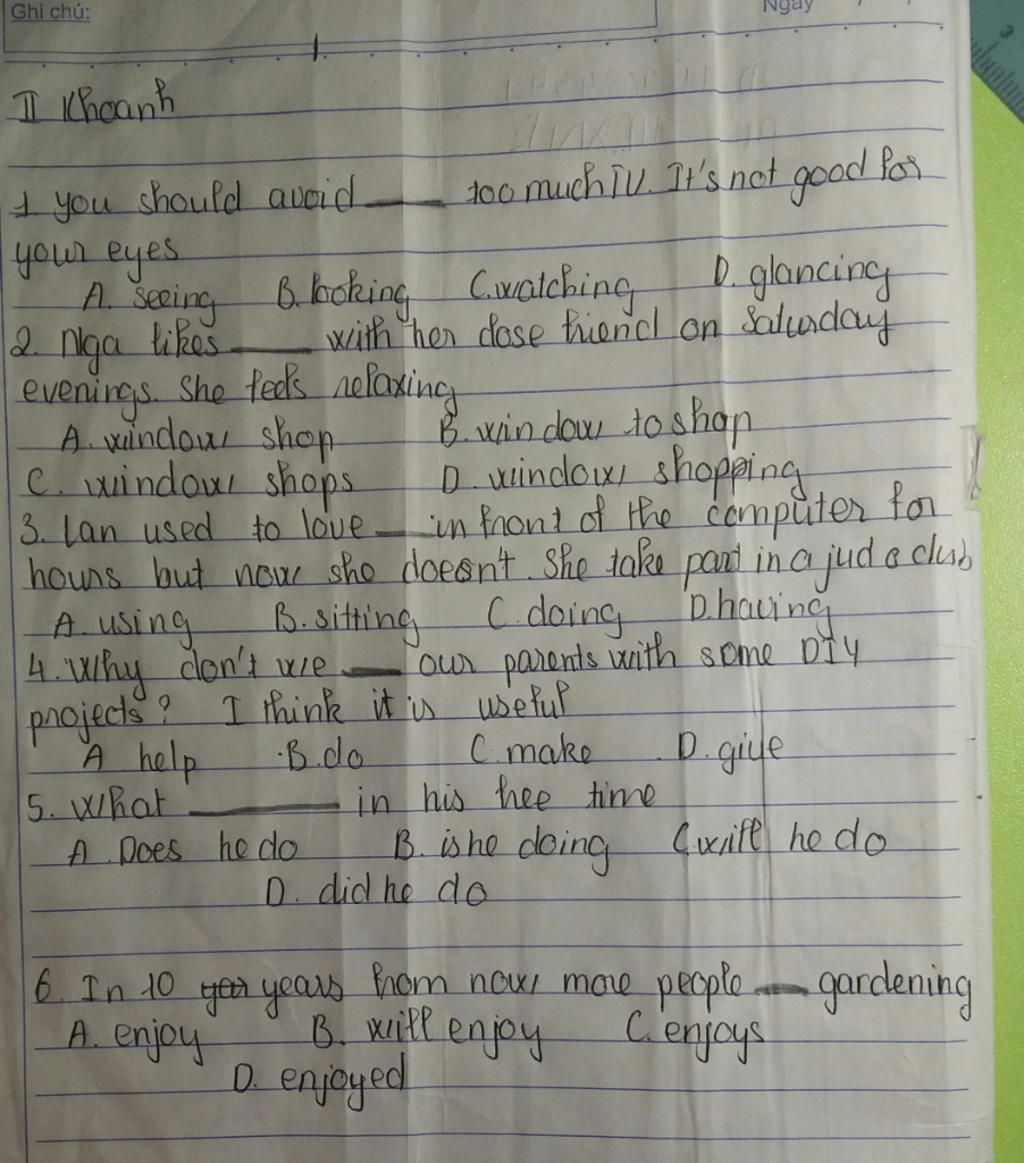 Ghi chú:
Ngày
II Khoanh
1 you should avoid ___ too much TV. It's not good for
your eyes
A. seeing B. looking C. watching D. glancing
2. Nga likes ___ with her close friend on Saturday
evenings. She feels relaxing
A. window shop B. window to shop
C. window shops D. window shopping
3. Lan used to love ___ in front of the computer for
hours but now she doesn't. She take part in a judo club
A. using B. sitting C. doing D. having
4. Why don't we ___ our parents with some DIY
projects? I think it is useful
A help B. do C. make D. give
5. What ___ in his free time
A. Does he do B. is he doing C. will he do
D. did he do
6. In 10 years from now, more people ___ gardening
A. enjoy B. will enjoy C. enjoys
D. enjoyed